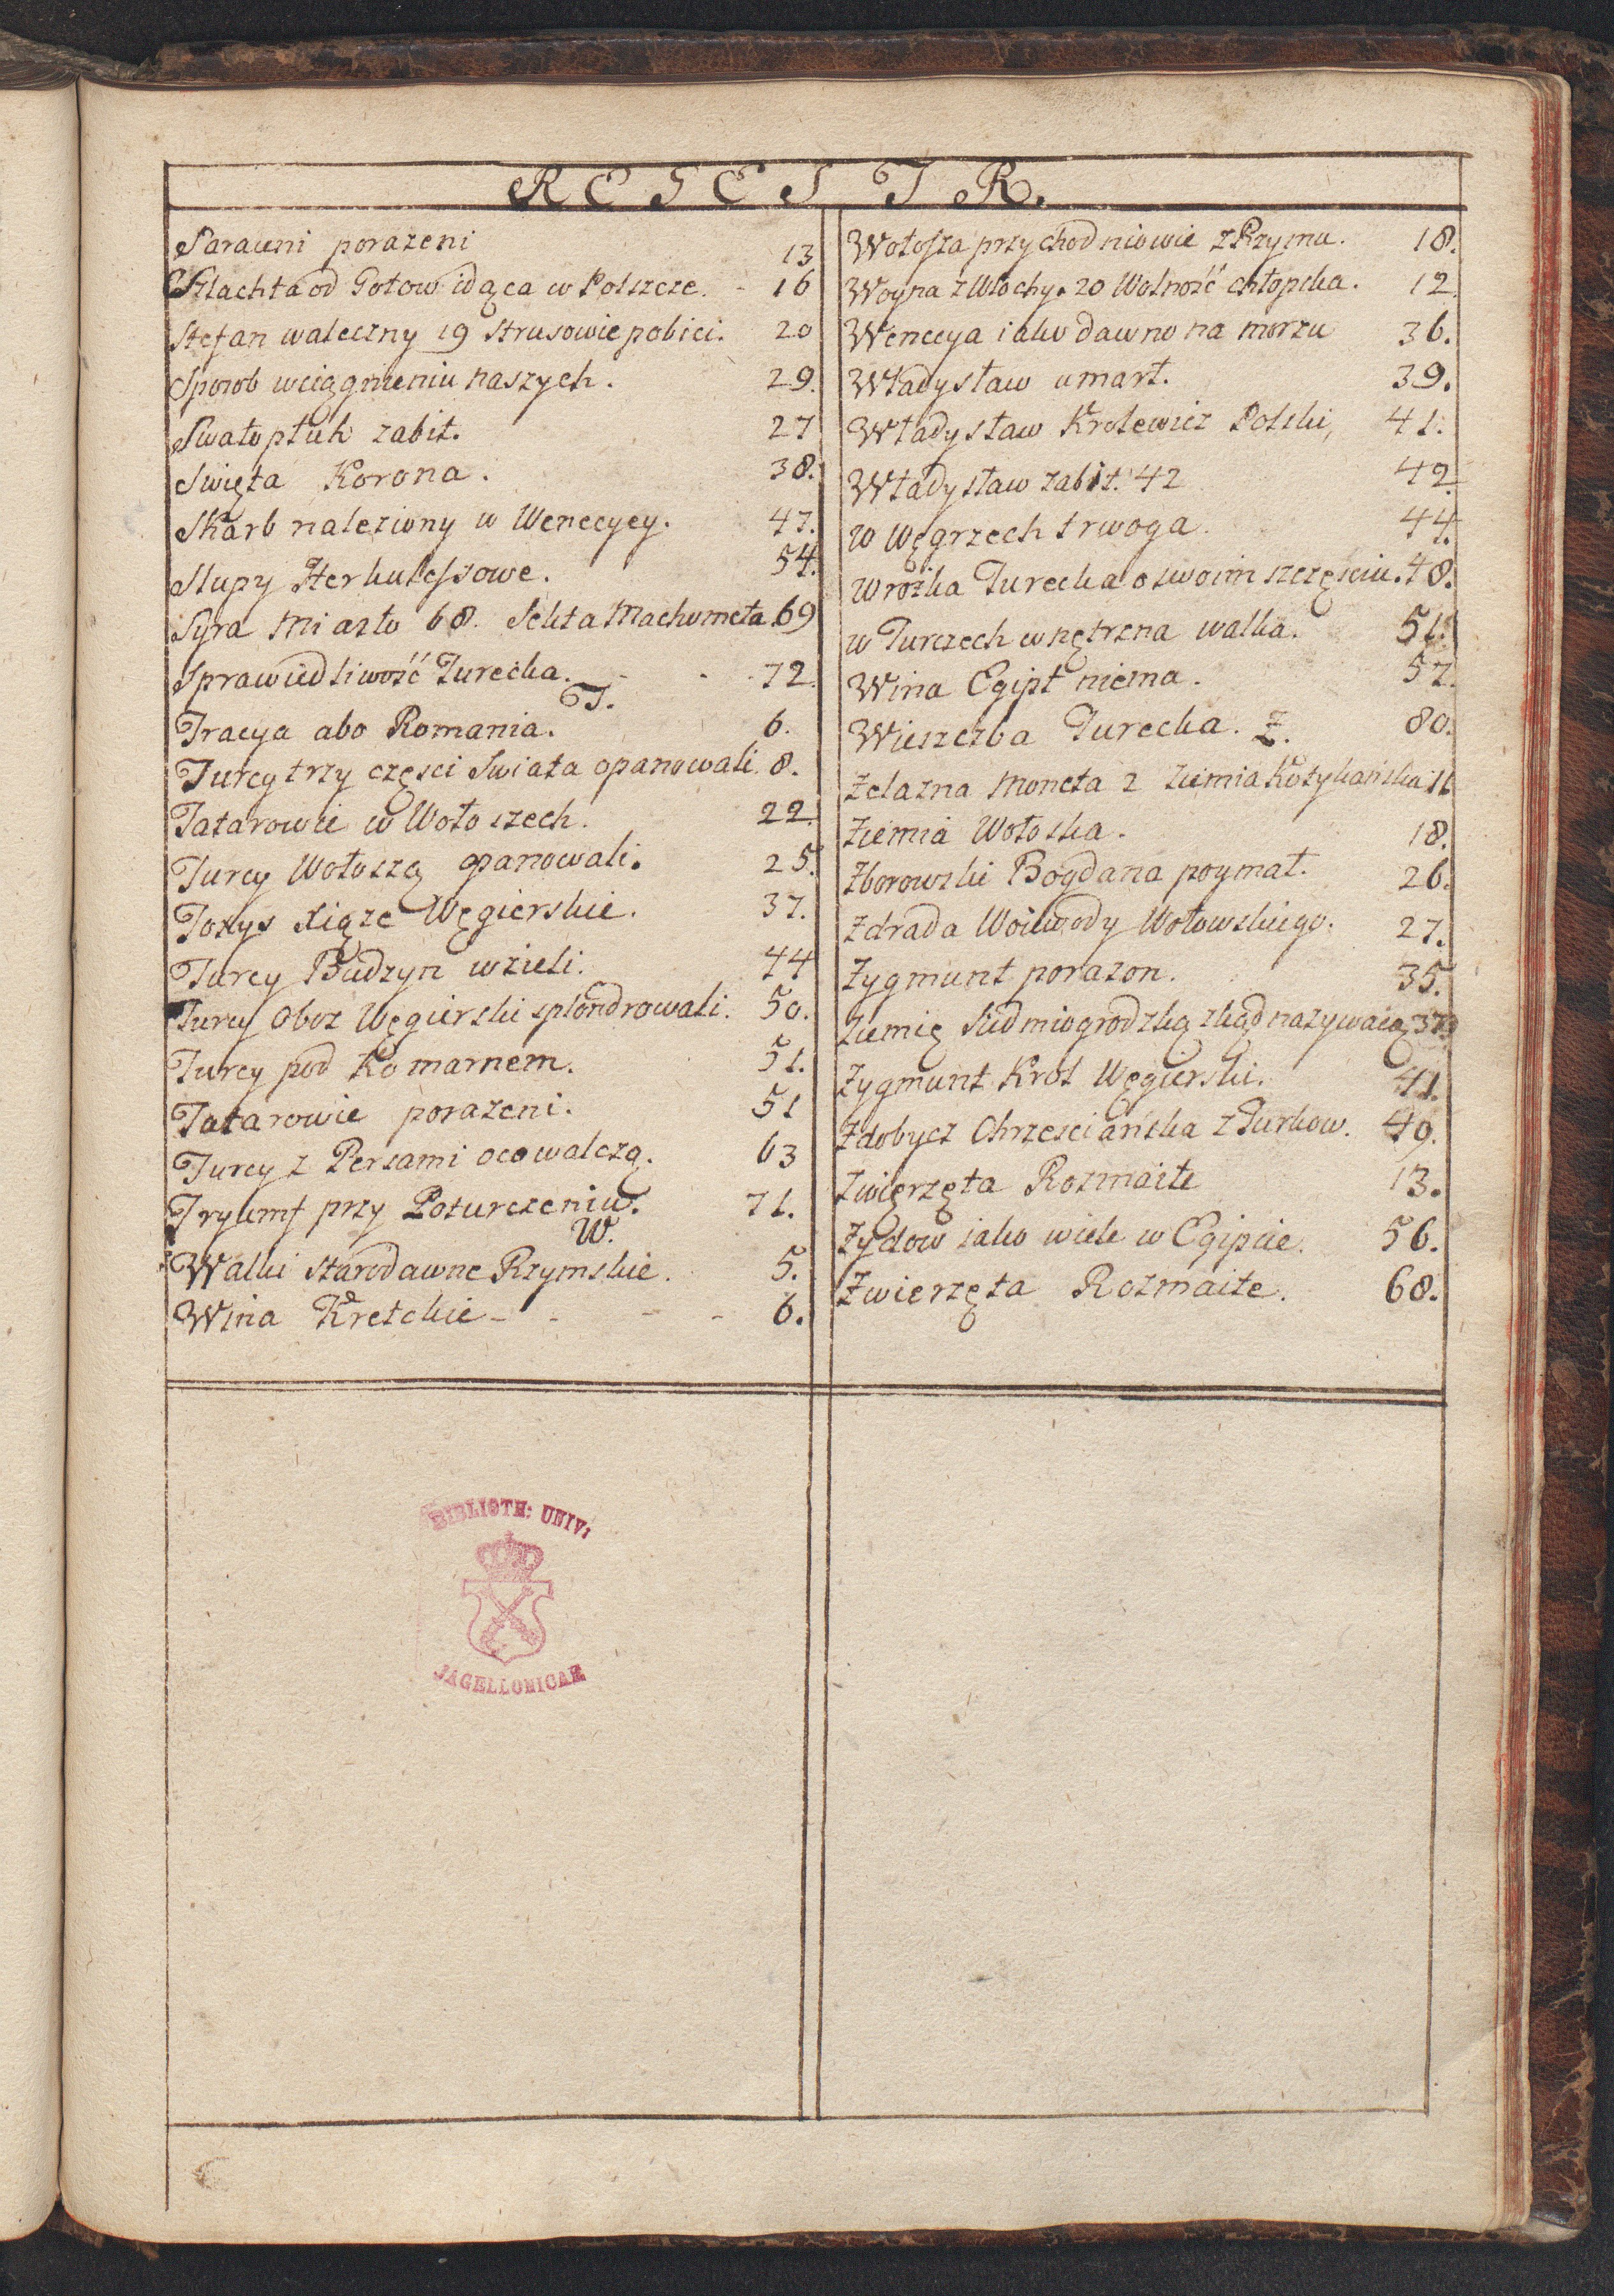 REGESTR.
Sarauni porazeni 13
Szlachta od Gotow idąca w Polszcze. - 16
Stefan waleczny 19 Strusowie pobici. 20
Sposob wciągnieniu naszych. 29.
Swatopłuk zabit. 27
Swięta Korona. 38.
Skarb naleziony w Wenecyey. 47.
Slupy Herkulessowe. 54.
Syra Miasto 68. Sekta Machometa 69
Sprawiedliwość Turecka. - - - 72.
T.
Tracya abo Romania. 6.
Turcy trzy częsci Swiata opanowali. 8.
Tatarowie w Wołoszech. 22.
Turcy Wołoszą opanowali. 25.
Toxys Xiąze Węgierskie. 37.
Turcy Budzyn wzieli. 44
Turcy Oboz Węgierski splondrowali. 50.
Turcy pod Komarnem. 51.
Tatarowie porazeni. 51
Turcy z Persami oco walczą. 63
Tryumf przy Poturczeniu. 71.
W.
Walki starodawne Rzymskie. 5.
Wina Kretckie - - - 6.
Wołosza przychodniowie z Rzymu. 18.
Woyna z Włochy. 20 Wolność chłopska. 12.
Wenecya iako dawno na morzu 36.
Władysław umarł. 39.
Władysław Krolewicz Polski, 41.
Władysław zabit. 42 42.
w Węgrzech trwoga. 44.
wrożka Turecka o swoim szczęściu. 48.
w Turczech wnętrzna walka. 51.
Wina Egipt niema. 57.
Wieszczba Turecka. 80.
Z.
Zelazna Moneta 2 Ziemia Kotyhańska 11
Ziemia Wołoska. 18.
Zborowski Bogdana poymał. 26.
Zdrada Woiewody Wołowskiego. 27.
Zygmunt porazon. 35.
Ziemię Siedmiogrodzką zkąd nazywaią 37.
Zygmunt Krol Węgierski. 41.
Zdobycz Chrzesciańska z Turkow. 49.
Zwięrzęta Rozmaite 13.
Zydow iako wiele w Egipcie. 56.
Zwierzęta Rozmaite. 68.
BIBLIOTH: UNIV:
JAGELLONICAE